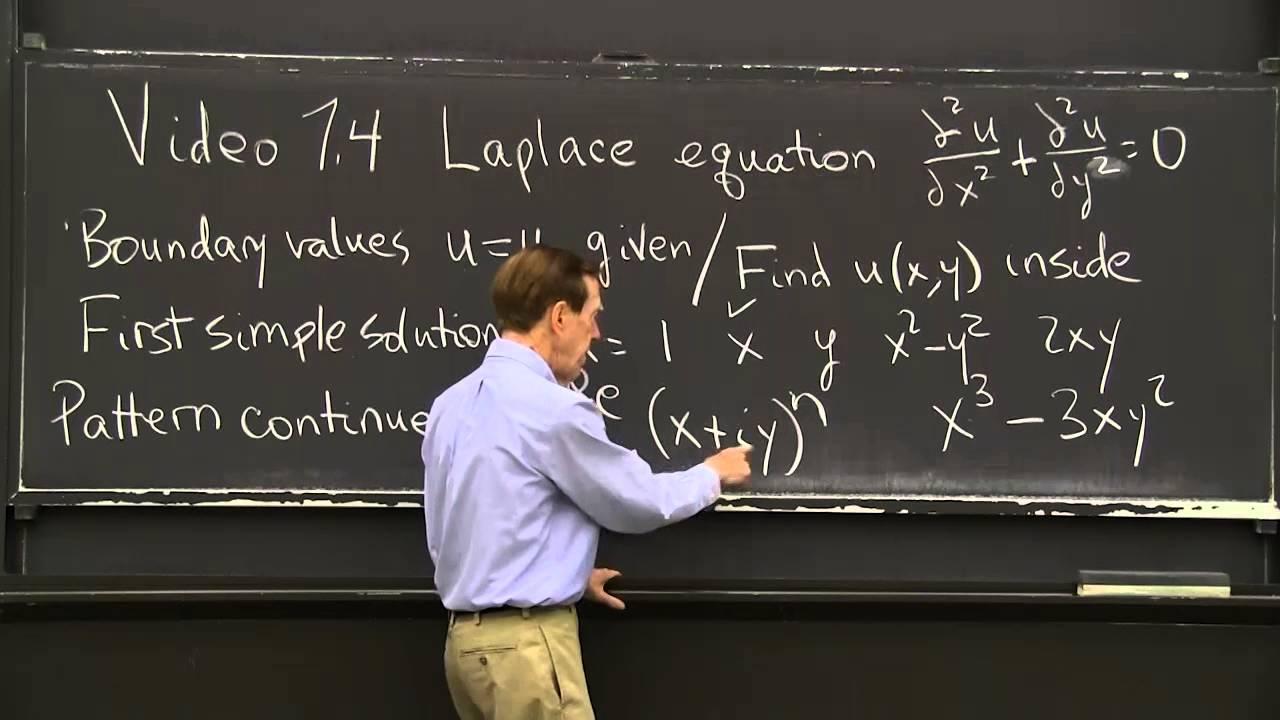 Video 7.4 Laplace equation ∂²u/∂x² + ∂²u/∂y² = 0
Boundary values u = given / Find u(x,y) inside
First simple solution = 1 x ✓ y x² – y² 2xy
Pattern continue (x+iy)ⁿ x³ – 3xy²